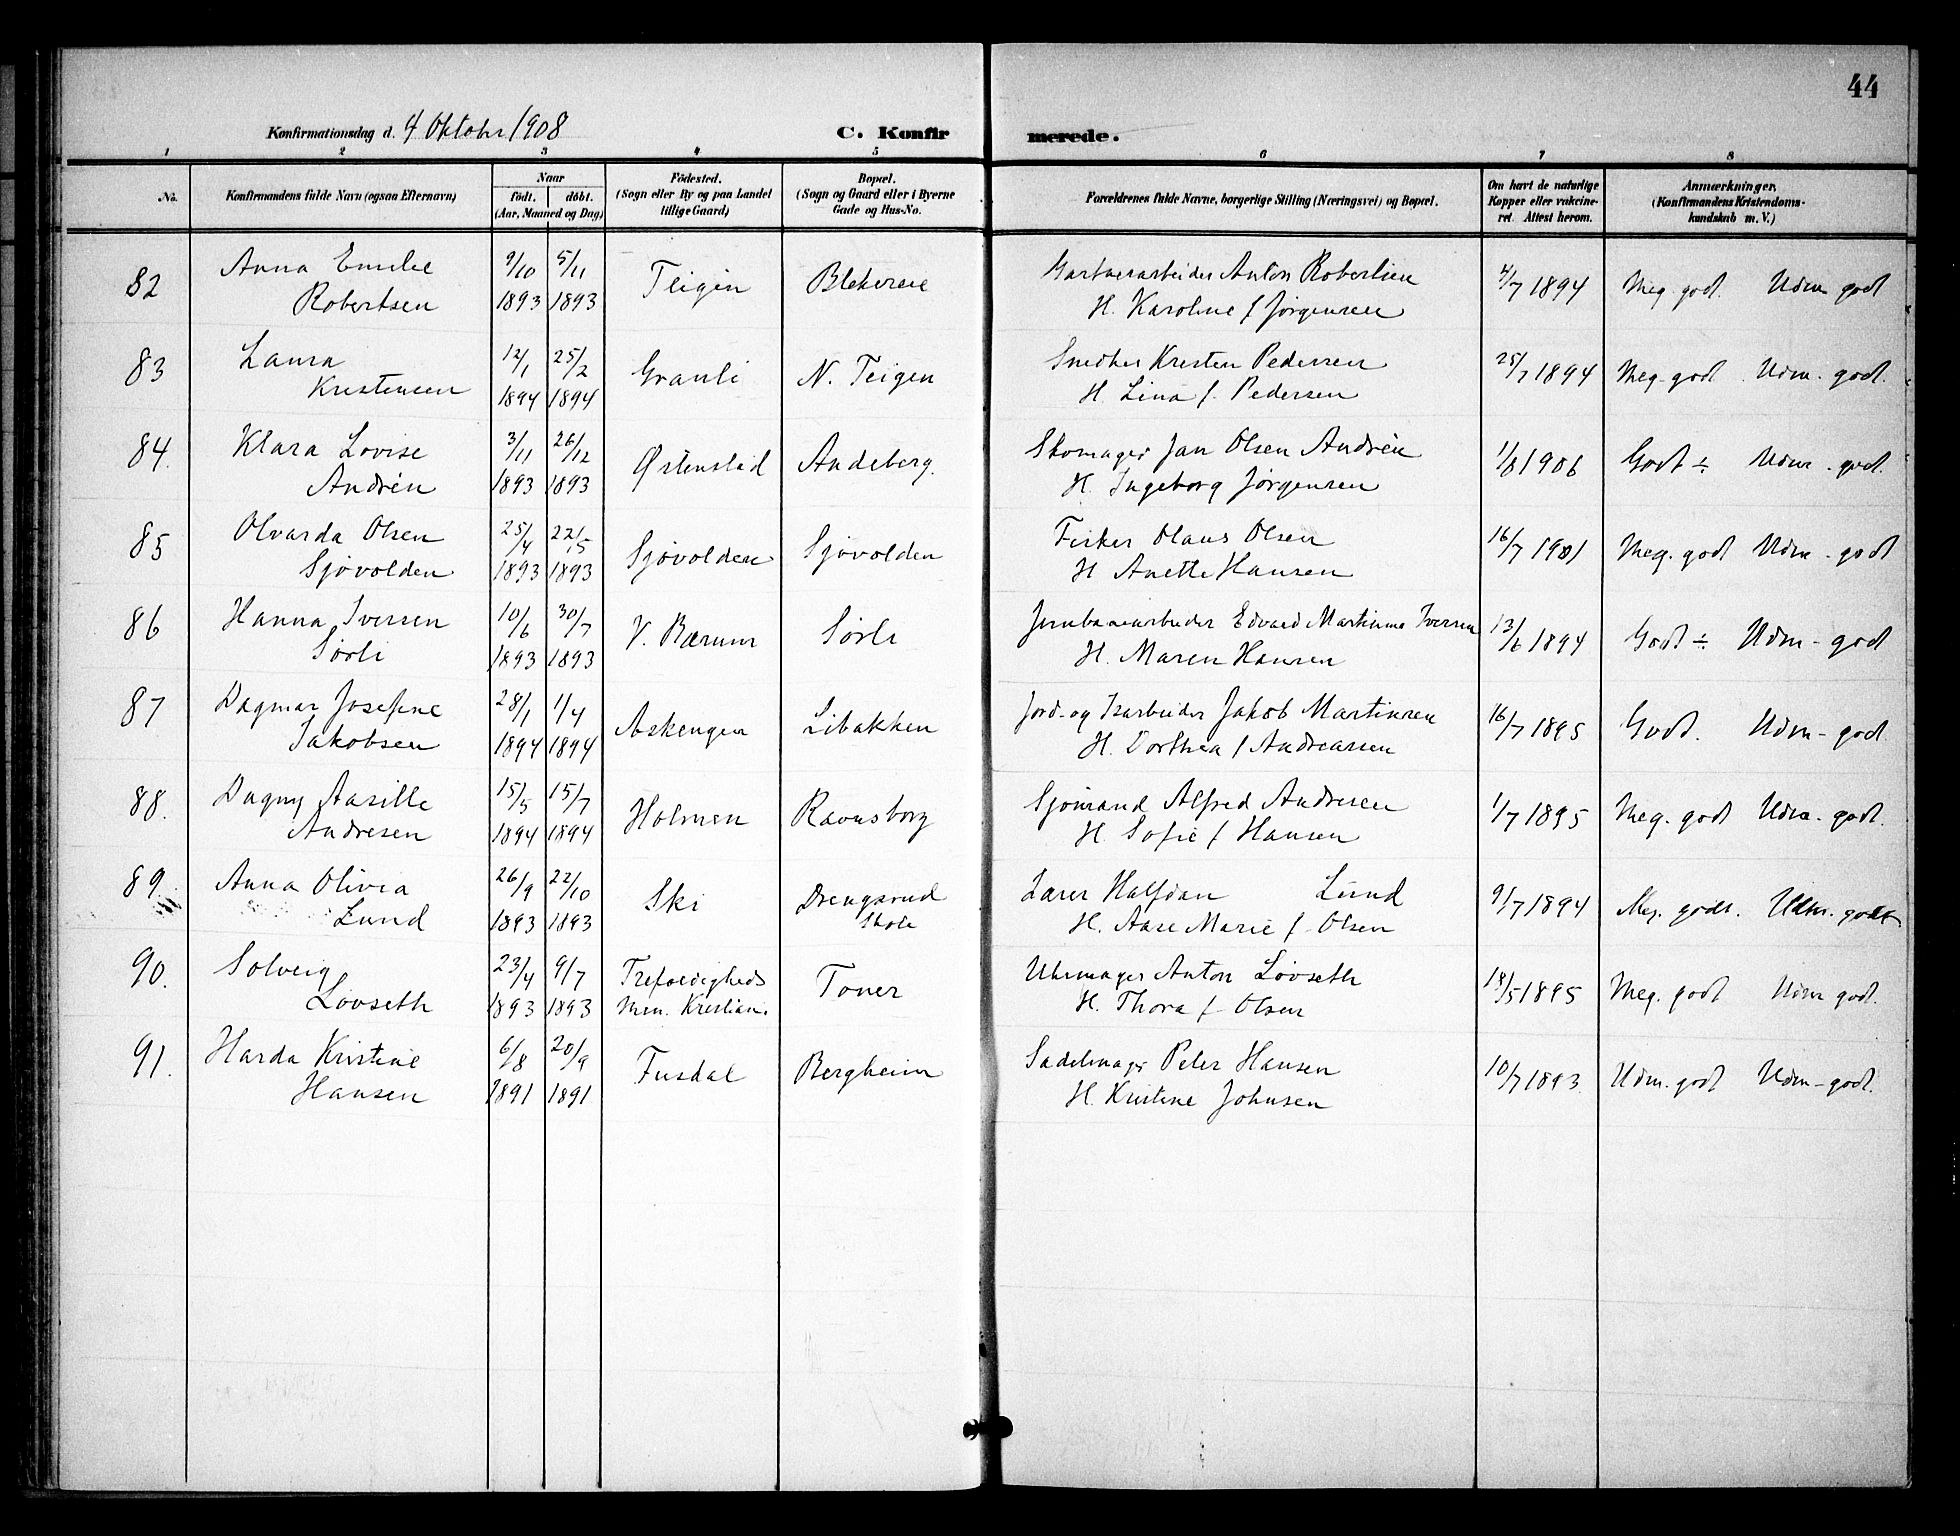 44
Konfirmationsdag d. 4 Oktobr 1908
C. Konfirmerede.
1 2 3 4 5 6 7 8
No.
Konfirmandens fulde Navn (ogsaa Efternavn)
Naar
födt. döbt.
(Aar, Maaned og Dag)
Födested.
(Sogn eller By og paa Landet
tillige Gaard)
Bopæl.
(Sogn og Gaard eller i Byerne
Gade og Hus-No.
Forældrenes fulde Navne, borgerlige Stilling (Næringsvei) og Bopæl.
Om havt de naturlige
Kopper eller vakcine-
ret. Attest herom.
Anmærkninger.
(Konfirmandens Kristendoms-
kundskab m. V.)
82 Anna Emilie 9/10 5/11 Teigen Blekereie Gartnerarbeider Anton Robertsen 4/7 1894 Meg. god. Udm god
Robertsen 1893 1893 H. Karoline f Jørgensen
83 Laura 12/1 25/2 Granli N. Teigen Snedker Kristen Pedersen 25/7 1894 Meg. god Udm. god.
Kristensen 1894 1894 H. Lina f. Pedersen
84. Klara Lovise 3/11 26/12 Østenstad Andeberg. Skomager Jan Olsen Andrén 1/8 1906 Godt ÷ Udm. god.
Andrén 1893 1893 H. Ingeborg Jørgensen
85 Olvarda Olsen 25/4 22/5 Sjøvolden Sjøvolden Fisker Olaus Olsen 16/7 1901 Meg. god Udm. god
Sjøvolden 1893 1893 H Anette Hansen
86 Hanna Iversen 10/6 30/7 V. Bærum Sørli Jernbanearbeider Edvard Martinius Iversen 13/6 1894 Godt ÷ Udm- god
Sørli 1893 1893 H. Maren Hansen
87 Dagmar Josefine 28/1 1/4 Askengen Libakken Jord- og Isarbeider Jakob Martinsen 16/7 1895 Godt. Udm- god.
Jakobsen 1894 1894 H. Dorthea f Andreassen
88. Dagny Aasille 15/5 15/7 Holmen Ravnsborg Sjömand Alfred Andresen 1/7 1895 Meg. god Udm. god.
Andresen 1894 1894 H. Sofie f Hansen
89. Anna Olivia 26/9 22/10 Ski Drengsrud Lærer Halfdan Lund 9/7 1894 Meg. godt. Udm. godt
Lund 1893 1893 Skole H. Aase Marie f. Olsen
90. Solveig 23/4 9/7 Trefoldigheds Toner Uhrmager Anton Lövseth 18/5 1895 Meg. god Udm god.
Lövseth 1893 1893 Men. Kristian. H. Thora f. Olsen
91. Harda Kristine 6/8 20/9 Fusdal Bergheim Sadelmager Peter Hansen 10/7 1893 Udm. god Udm- god.
Hansen 1891 1891 H. Kristine Johnsen